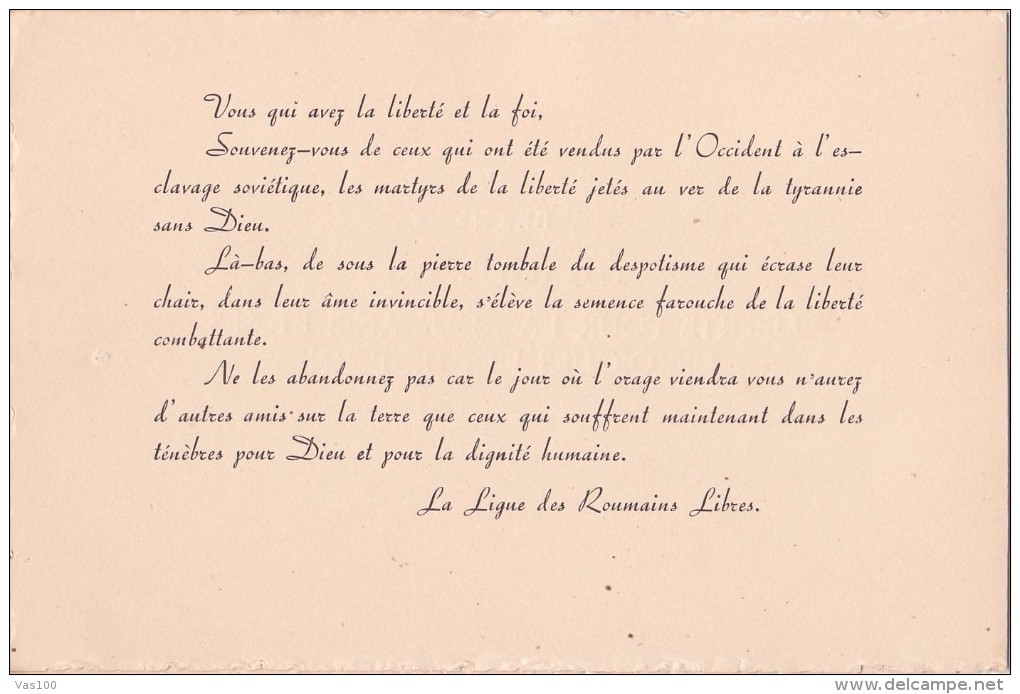 Vous qui avez la liberté et la foi,
Souvenez-vous de ceux qui ont été vendus par l'Occident à l'es-
clavage soviétique, les martyrs de la liberté jetés au ver de la tyrannie
sans Dieu.
Là-bas, de sous la pierre tombale du despotisme qui écrase leur
chair, dans leur âme invincible, s'élève la semence farouche de la liberté
combattante.
Ne les abandonnez pas car le jour où l'orage viendra vous n'aurez
d'autres amis sur la terre que ceux qui souffrent maintenant dans les
ténèbres pour Dieu et pour la dignité humaine.
La Ligue des Roumains Libres.
Vas100
delcampe.net